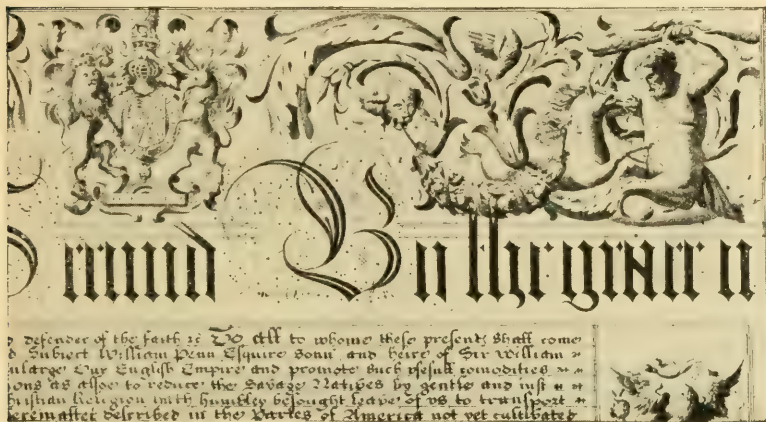 Second By the grace
defender of the faith &c To all to whome these presents shall come
Subiect William Penn Esquire Sonn and heire of Sir William
nlarge Our English Empire and promote such vsefull comodities
ons as alsoe to reduce the Savage Natives by gentle and iust
hristian Religion hath humbley besought leave of vs to transport
ereinafter described in the Partes of America not yet cultivated